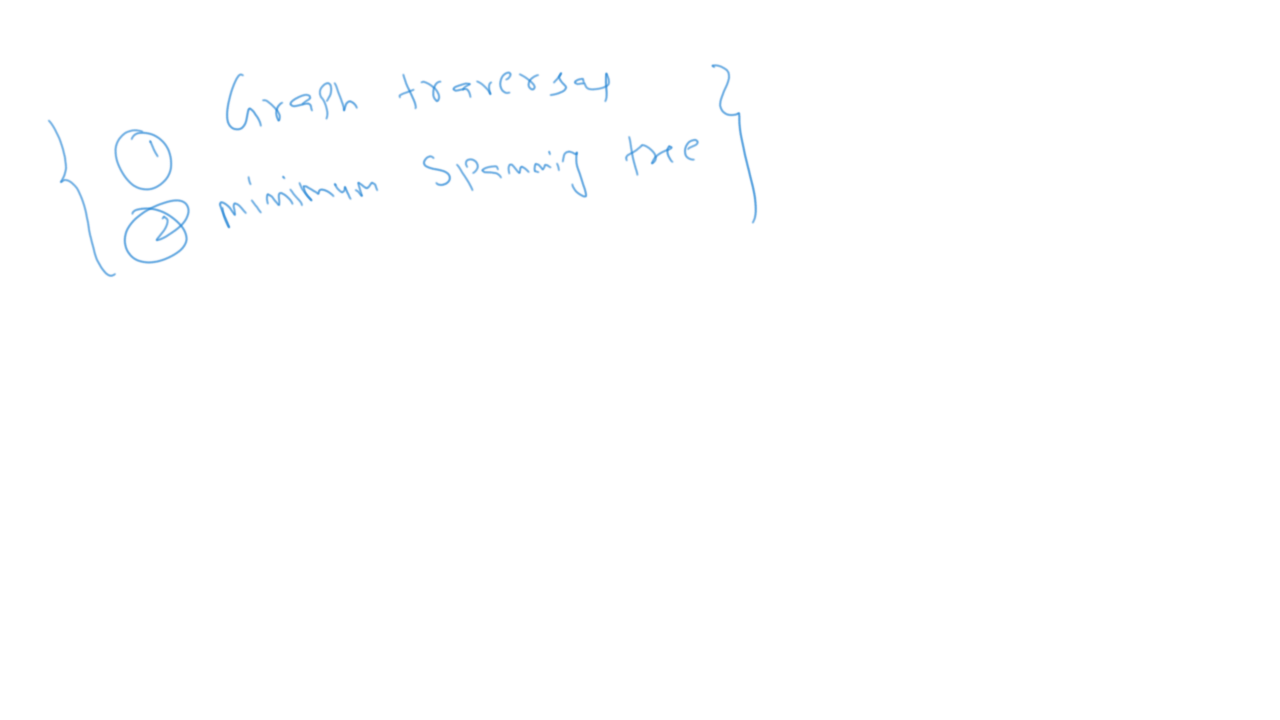 ① Graph traversal
② minimum spanning tree